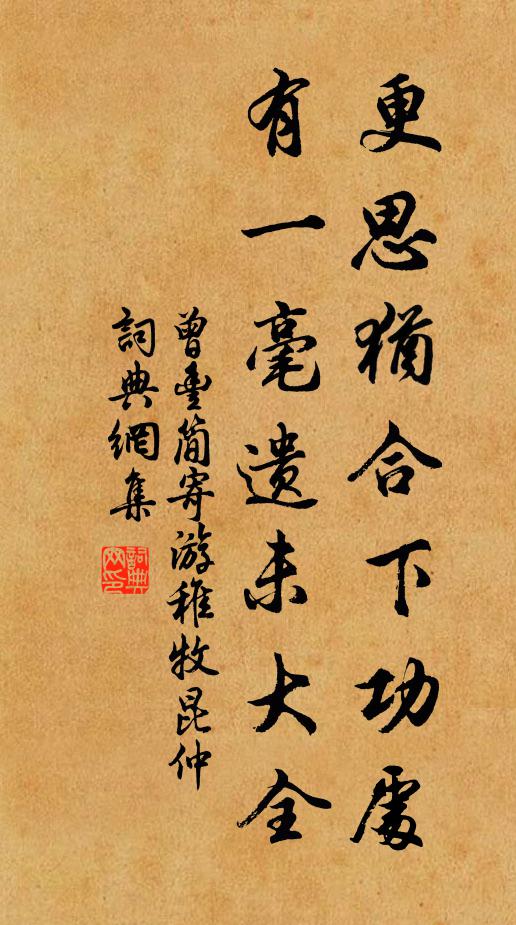 更思猶合下功處
有一毫遺未大全
曾豊簡寄游稚牧昆仲
詞典網集
詞典
网印